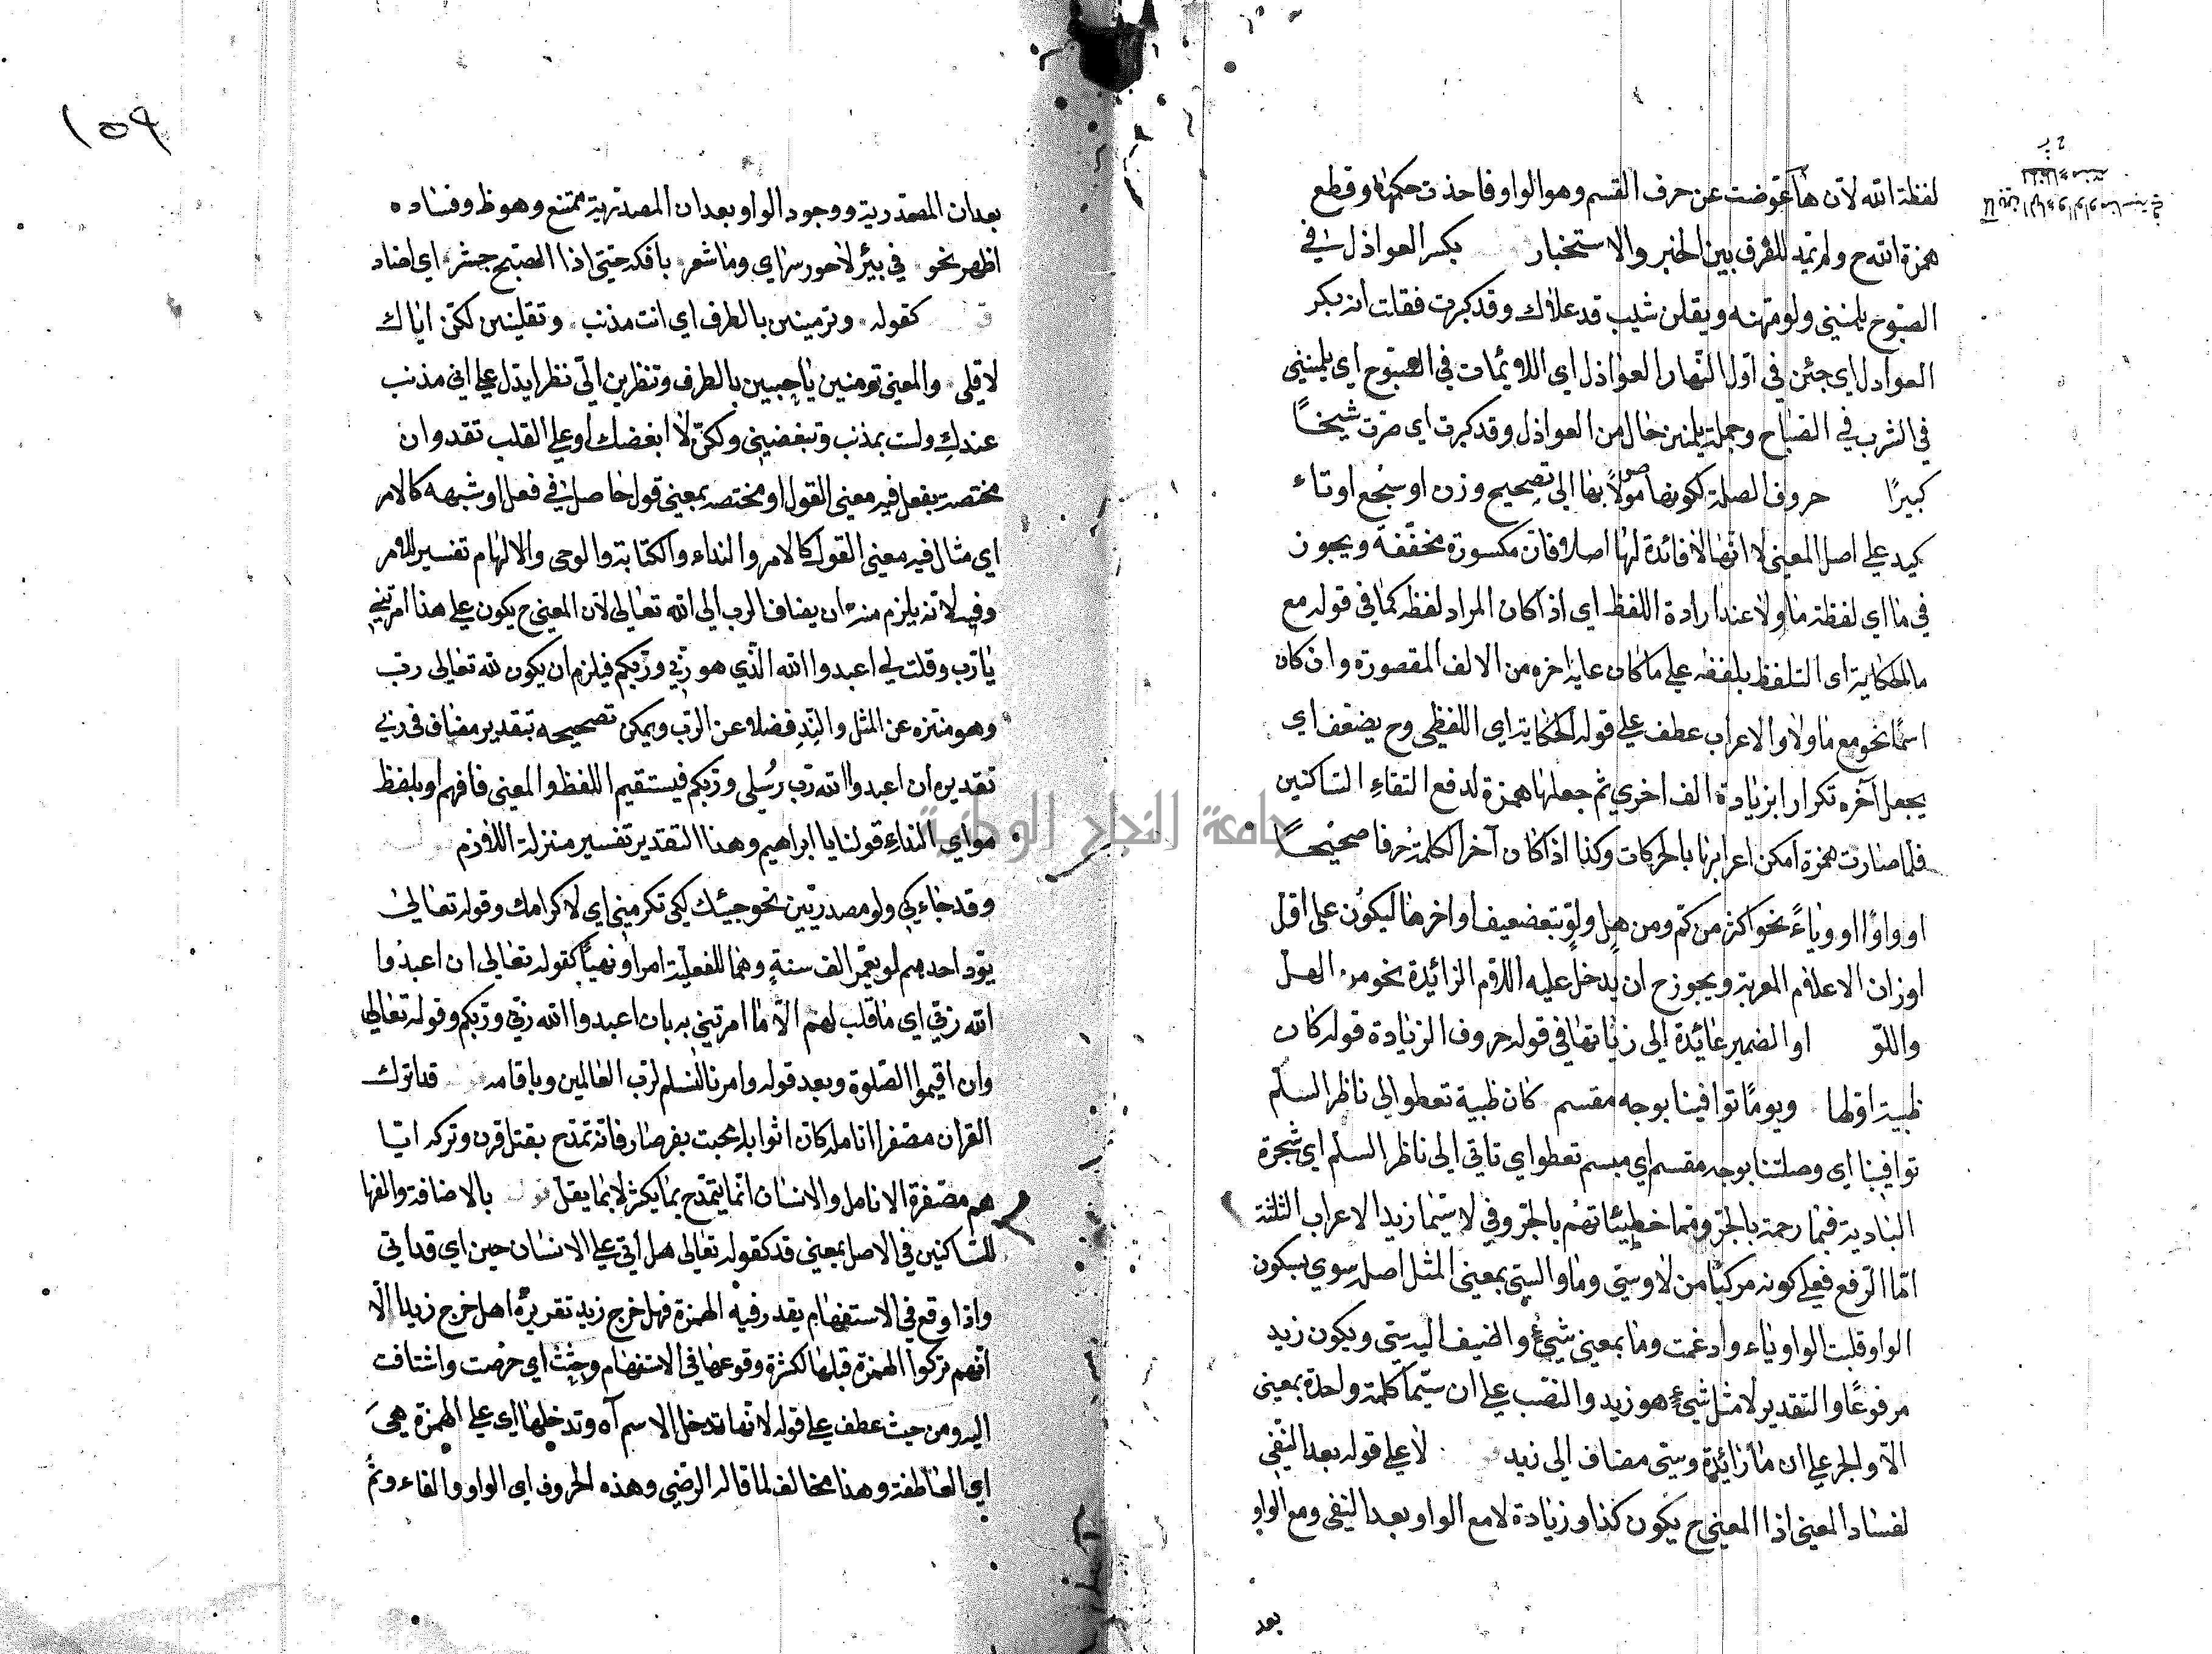 لفظة الله لان ها عوّضت عن حرف القسم وهو الواو فاخذت حكمها وقطع
همزة الله ح ولم تمد للفرق بين الخبر والاستخبار بكر العواذل في
الصبوح يلمنني ولومتهنه ويقلن شيب قد علاك وقد كبرت فقلت انه بكر
العواذل اي جئن في اوّل النهار العواذل اي اللائمات في الصبوح اي يلمنني
في الشرب في الصباح وجملة يلمنن حال من العواذل وقد كبرت اي صرت شيخًا
كبيرًا حروف الصلة لكونها موصولاً بها الى تصحيح وزن او سجع او تاء
كيد على اصل المعنى لا انها لا فائدة لها اصلا وفان مكسورة مخففة ويجوز
في ما اي لفظة ما ولا عند ارادة اللفظ اي اذا كان المراد لفظه كما في قوله مع
ما الحكاية اى التلفظ بلفظه على ما كان عليه اخره من الالف المقصورة وان كان
اسمًا نحو مع ما ولا والاعراب عطف على قوله الحكاية اي اللفظي وح يضعف اي
يجعل آخره تكرارا بزيادة الف اخري ثم جعلها همزة لدفع التقاء الساكنين
فلما صارت همزة امكن اعرابها بالحركات وكذا اذا كان آخر الكلمة حرفا صحيحًا
او واوًا او وياءً نحو اكثر من كمّ ومن هلٍ ولوٍّ بتضعيف اواخرها ليكون على اقل
اوزان الاعلام المعربة ويجوز ح ان يدخل عليه اللام الزائدة نحو من الهلّ
واللوّ او الضمير عائدة الى زياتها في قوله حروف الزيادة قوله كان
ظبية اولها ويومًا توافينا بوجه مقسم كان ظبية تعطو الى ناظر السلم
توافينا اى وصلتنا بوجه مقسم اي مبسم تعطو اي تاتي الى ناظر السلم اي شجرة
البادية فبما رحمة بالجرّ ومما خطيئاتهم بالجرّ وفي لاسيّما زيد الاعراب الثلثة
امّا الرّفع فعلى كونه مركبًا من لا وسيّ وما والسيّ بمعنى المثل اصله سوي بسكون
الواو قلبت الواو ياء وادغمت وما بمعنى شيءٍ واضيف اليه سيّ ويكون زيد
مرفوعًا والتقدير لا مثل شيءٍ هو زيد والنصب على ان سيّما كلمة واحدة بمعنى
الّا والجر على ان ما زائدة وسيّ مضاف الى زيد لا على قوله بعد النفي
لفساد المعنى اذا المعنى ح يكون كذا وزيادة لا مع الواو بعد النفي ومع الواو
بعد
١٥٩
بعد ان المصدرية ووجود الواو بعد ان المصدرية ممتنع وهو ظ وفساده
اظهر نحو في بئر لا حور سراي وما شعر بافكه حتى اذا الصبح جشر اي اضاء
كقوله وترمينني بالطرف اي انت مذنب وتقلينني لكنّ اياك
لا قلي والمعنى تومنين يا حبيبين بالطرف وتنظرين الىّ نظرا يدل على اني مذنب
عندكِ ولست بمذنب وتبغضيني ولكنّ لا ابغضك او على القلب تقد وان
مختصة بفعل فيه معنى القول او مختصه بمعنى قول حاصل في فعل او شبهه كالامر
اي مثال فيه معنى القول كالامر والنداء والكتابة والوحى والالهام تفسير للامر
وفيه لانه يلزم منه ان يضاف الرب الى الله تعالى لان المعنى ح يكون على هذا امرتني
يا رب وقلت لي اعبدوا الله الّذي هو ربّي وربّكم فيلزم ان يكون لله تعالى ربّ
وهو منزه عن المثل والنِدِّ فضلا عن الربّ ويمكن تصحيحه بتقدير مضاف في ربّي
تقديره ان اعبدوا الله ربّ رُسُلي وربّكم فيستقيم اللفظ والمعنى فافهم او بلفظ
هو اي النداء قولنا يا ابراهيم وهذا التقدير تفسير منزلة اللازم
وقد جاء كي ولو مصدريّين نحو جيئك لكي تكرمني اي لاكرامك وقوله تعالى
يودّ احدهم لو يعمّر الف سنةٍ وهما للفعلية امرا ونهيًا كقوله تعالى ان اعبدوا
الله ربّي اي ما قلت لهم الّا ما امرتني به بان اعبدوا الله ربّي وربّكم وقوله تعالى
وان اقيموا الصّلوة وبعد قوله وامرنا لنسلم لربّ العالمين وباقامه قد اترك
القران مصفرا انامله كان اثوابه مجت بفرصاد فانه تمدّح بقتل قرن وتركه ايّا
هم مصفرة الانامل والانسان انّما يتمدّح بما يكثر لا بما يقل بالاضافة والفها
للساكنين في الاصل بمعنى قد كقوله تعالى هل اتى على الانسان حين اي قد اتى
واذا وقع في الاستفهام يقدر فيه الهمزة فهل خرج زيد تقريره اهل خرج زيد الّا
انّهم تركوا الهمزة قبلها لكثرة وقوعها في الاستفهام وحنّت اي حرصت واشتاقت
اليه ومن حيث عطف على قوله لانها تدخل الاسم آه وتدخلها اى على الهمزة هي
اي العاطفة وهنا مخالف لما قاله الرضي وهذه الحروف اي الواو والفاء وثم
جامعة النجاح الوطنية